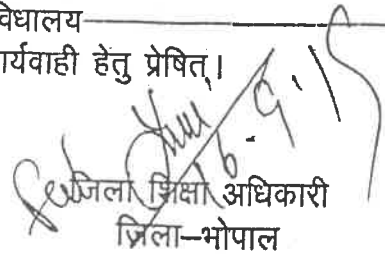 विधालय
र्यवाही हेतु प्रेषित्।
6.9.15
जिला शिक्षा अधिकारी
ज़िला–भोपाल